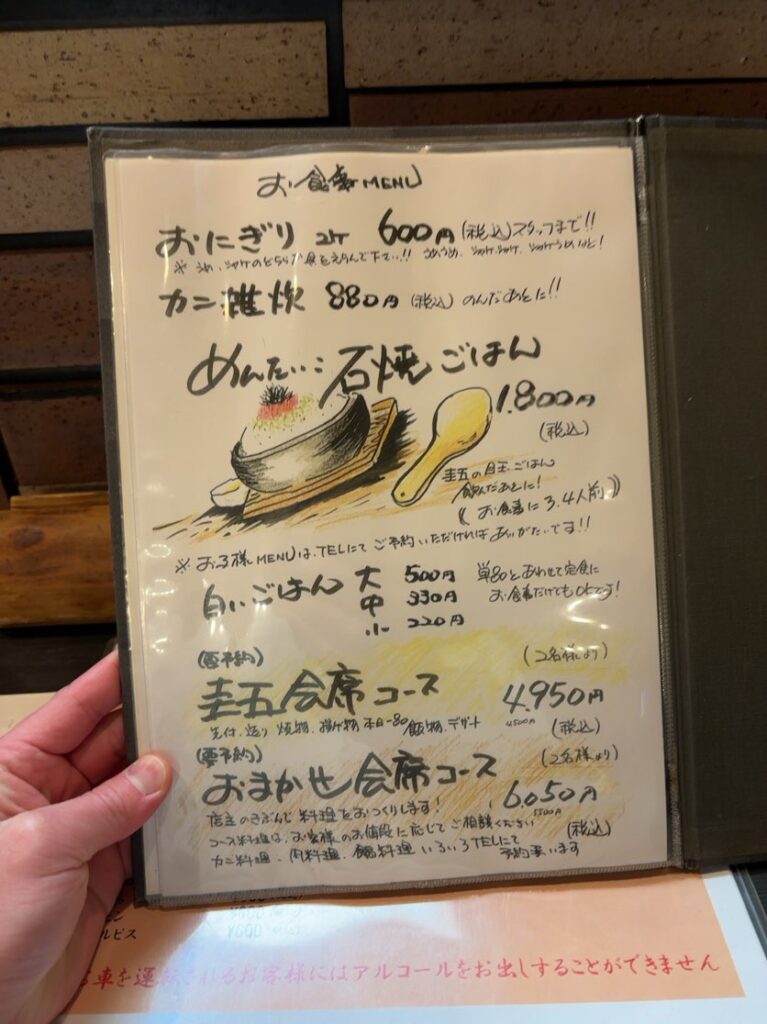 お食事MENU
おにぎり 2ケ 600円 (税込) スタッフまで!!
※ うめ、シャケのどちらか具をえらんで下さい!! うめうめ、シャケシャケ、シャケうめ
カニ雑炊 880円 (税込) のんだあとに!!
めんたいこ石焼ごはん
1.800円
(税込)
圭五の目玉ごはん
飲んだあとに!
《お食事に3.4人前》
※ お子様MENUは、TELにて ご予約いただければ ありがたいです!!
白いごはん 大 500円 単品とあわせて定食に
中 330円 お食事だけでもOKです!
小 220円
(要予約) (2名様より)
圭五会席コース 4.950円
4500円
先付、造り 焼物、揚げ物 本日一品 飯物、デザート (税込)
(要予約) (2名様より)
おまかせ会席コース 6.050円
5500円
店主のきぶんで料理をおつくりします!
コース料理は、お客様のお値段に応じてご相談ください (税込)
カニ料理、肉料理、料理 いろいろTELにて
予約承います
ルピス ¥600
車を運転されるお客様にはアルコールをお出しすることができません